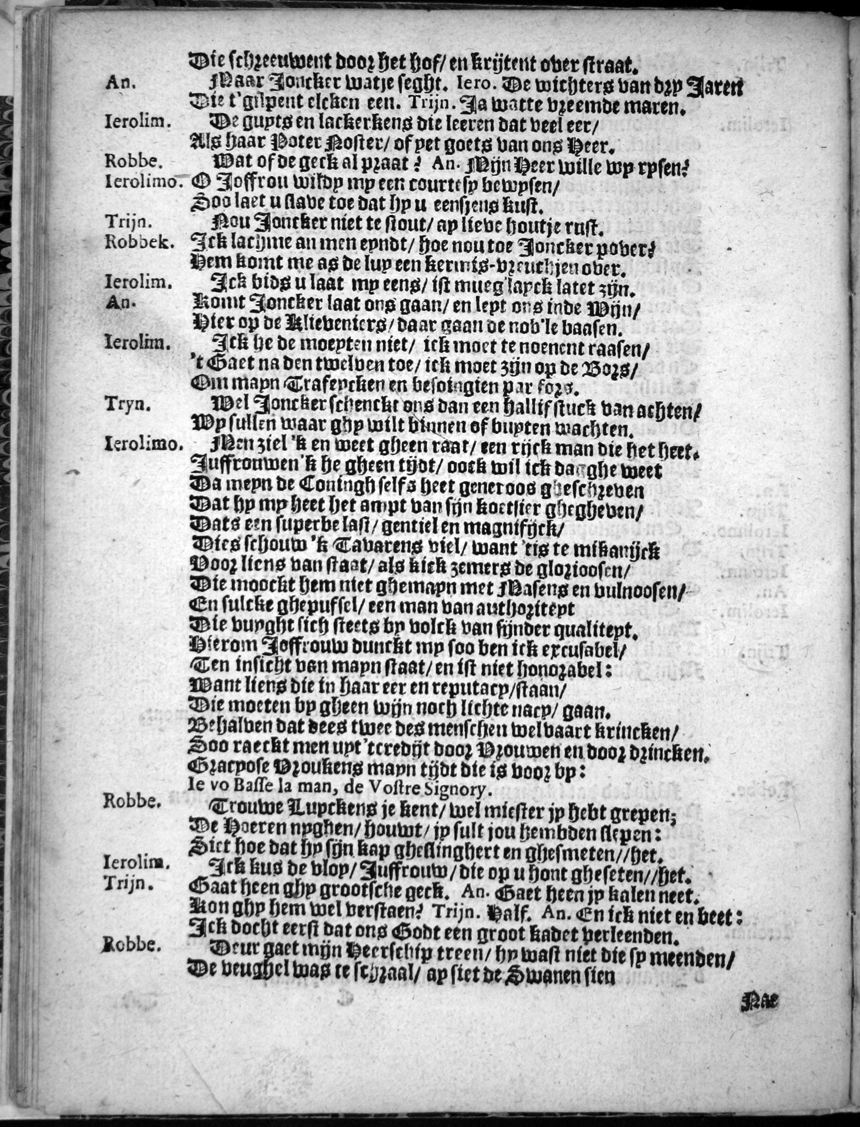 Die schreeuwent door het hof/ en krijtent over straat.
An. Maar Joncker watje seght. Iero. De wichters van dry Jaren
Die t'gilpent elcken een. Trijn. Ja watte vreemde maren.
Ierolim. De guyts en lackerkens die leeren dat veel eer/
Als haar Poter Noster/ of yet goets van ons Heer.
Robbe. Wat of de geck al praat? An. Mijn Heer wille wy rysen?
Ierolimo. O Joffrou wildy my een courtesy bewysen/
Soo laet u slave toe dat hy u eensjens kust.
Trijn. Nou Joncker niet te stout/ ay lieve houtje rust.
Robbek. Ick lachme an men eyndt/ hoe nou toe Joncker pover?
Hem komt me as de luy een kermis-vreuchjen over.
Ierolim. Ick bids u laat my eens/ ist mueg'layck latet zijn.
An. Komt Joncker laat ons gaan/ en leyt ons inde Wijn/
Hier op de Klieveniers/ daar gaan de nob'le baasen.
Ierolim. Ick he de moeyten niet/ ick moet te noenent raasen/
't Gaet na den twelven toe/ ick moet zijn op de Bors/
Om mayn Trafeycken en besoingtien par fors.
Tryn. Wel Joncker schenckt ons dan een hallif stuck van achten/
Wy sullen waar ghy wilt binnen of buyten wachten.
Ierolimo. Men ziel 'k en weet gheen raat/ een rijck man die het heet.
Juffrouwen 'k he gheen tijdt/ oock wil ick dat ghe weet
Da meyn de Coningh self s heet generoos gheschreven
Dat hy my heet het ampt van sijn koetsier ghegheven/
Dats een superbe last/ gentiel en magnifijck/
Dies schouw 'k Tavarens viel/ want 'tis te mikanijck
Voor liens van staat/ als kick zemers de glorioosen/
Die moockt hem niet ghemayn met Masens en vulnoosen/
En sulcke ghepuffel/ een man van authoriteyt
Die vuyght sich steets by volck van fijnder qualiteyt.
Hierom Joffrouw dunckt my soo ben ick excusabel/
Ten insicht van mayn staat/ en ist niet honorabel:
Want liens die in haar eer en reputacy/staan/
Die moeten by gheen wijn noch lichte nacy/ gaan.
Behalven dat dees twee des menschen welvaart krincken/
Soo raeckt men uyt 'tcredijt door Vrouwen en door drincken.
Gracyose Vroukens mayn tijdt die is voor by:
Ie vo Basse la man, de Vostre Signory.
Robbe. Trouwe Luyckens je kent/ wel miester jy hebt grepen;
De Hoeren nyghen/ houwt/ jy sult jou hembden slepen:
Siet hoe dat hy sijn kap ghessinghert en ghesmeten//het.
Ierolim. Ick kus de vloy/ Juffrouw/ die op u hont gheseten//het.
Trijn. Gaat heen ghy grootsche geck. An. Gaet heen jy kalen neet.
Kon ghy hem wel verstaen? Trijn. Half. An. En ick niet en beet:
Ick docht eerst dat ons Godt een groot kadet verleenden.
Robbe. Deur gaet mijn Heerschip treen/ hy wast niet die sy meenden/
De veughel was te schraal/ ay siet de Swanen sien
Nae